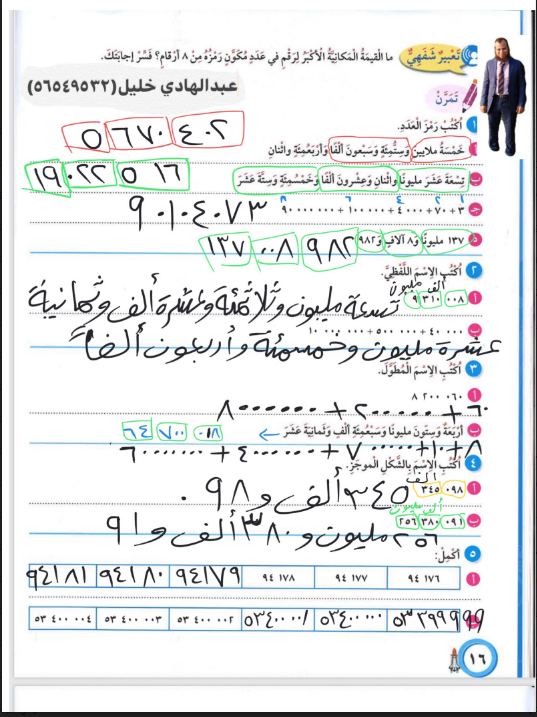 تَعْبيرٌ شَفَهِيٌّ ما الْقيمَةُ الْمَكانِيَّةُ الْأَكْبَرُ لِرَقْمٍ في عَدَدٍ مُكَوَّنٍ رَمْزُهُ مِنْ ٨ أَرْقامٍ؟ فَسِّرْ إجابَتَكَ.
عبدالهادي خليل(٥٦٥٤٩٥٣٢)
تَمَرَّنْ
١ اُكْتُبْ رَمْزَ الْعَدَدِ.
٥ ٦٧٠ ٤٠٢
أ خَمْسَةُ مَلايينَ وَسِتُّمِئَةٍ وَسَبْعونَ أَلْفًا وَأَرْبَعُمِئَةٍ واثْنانِ
١٩ ٠٢٢ ٥١٦
ب تِسْعَةَ عَشَرَ مليونًا واثْنانِ وعِشْرونَ أَلْفًا وَخَمْسُمِئَةٍ وَسِتَّةَ عَشَرَ
٩٠١٠٤٠٧٣
ج ٣ + ٧٠ + ٤٠٠٠ + ١٠٠٠٠٠ + ٩٠٠٠٠٠٠٠
د ١٣٧ مليونًا و٨ آلافٍ و٩٨٢
١٣٧ ٠٠٨ ٩٨٢
٢ اُكْتُبِ الِاسْمَ اللَّفْظِيَّ.
ألف مليون
أ ٩ ٣١٠ ٠٠٨
تسعة مليون وثلاثمئة وعشرة ألف وثمانية
ب ١٠ ٠٠٠ ٠٠٠ + ٥٠٠ ٠٠٠ + ٤٠ ٠٠٠
عشرة مليون وخمسمئة وأربعون ألفاً
٣ اُكْتُبِ الِاسْمَ الْمُطَوَّلَ.
أ ٨ ٢٠٠ ٠٦٠
٨٠٠٠٠٠٠ + ٢٠٠٠٠٠ + ٦٠
ب أَرْبَعَةٌ وَسِتّونَ مليونًا وَسَبْعُمِئَةِ أَلْفٍ وَثَمانِيَةَ عَشَرَ ← ٦٤ ٧٠٠ ٠١٨
٦٠٠٠٠٠٠٠ + ٤٠٠٠٠٠٠ + ٧٠٠٠٠٠ + ١٠ + ٨
٤ اُكْتُبِ الِاسْمَ بِالشَّكْلِ الْموجَزِ.
ألف
أ ٣٤٥ ٠٩٨
٣٤٥ ألف و ٩٨ .
ألف مليون
ب ٢٥٦ ٣٨٠ ٠٩١
٢٥٦ مليون و ٣٨٠ ألف و ٩١
٥ أَكْمِلْ:
أ ٩٤ ١٧٦ ٩٤ ١٧٧ ٩٤ ١٧٨ ٩٤١٧٩ ٩٤١٨٠ ٩٤١٨١
ب ٥٣٣٩٩٩٩٩ ٥٣٤٠٠٠٠٠ ٥٣٤٠٠٠٠١ ٥٣ ٤٠٠ ٠٠٢ ٥٣ ٤٠٠ ٠٠٣ ٥٣ ٤٠٠ ٠٠٤
١٦